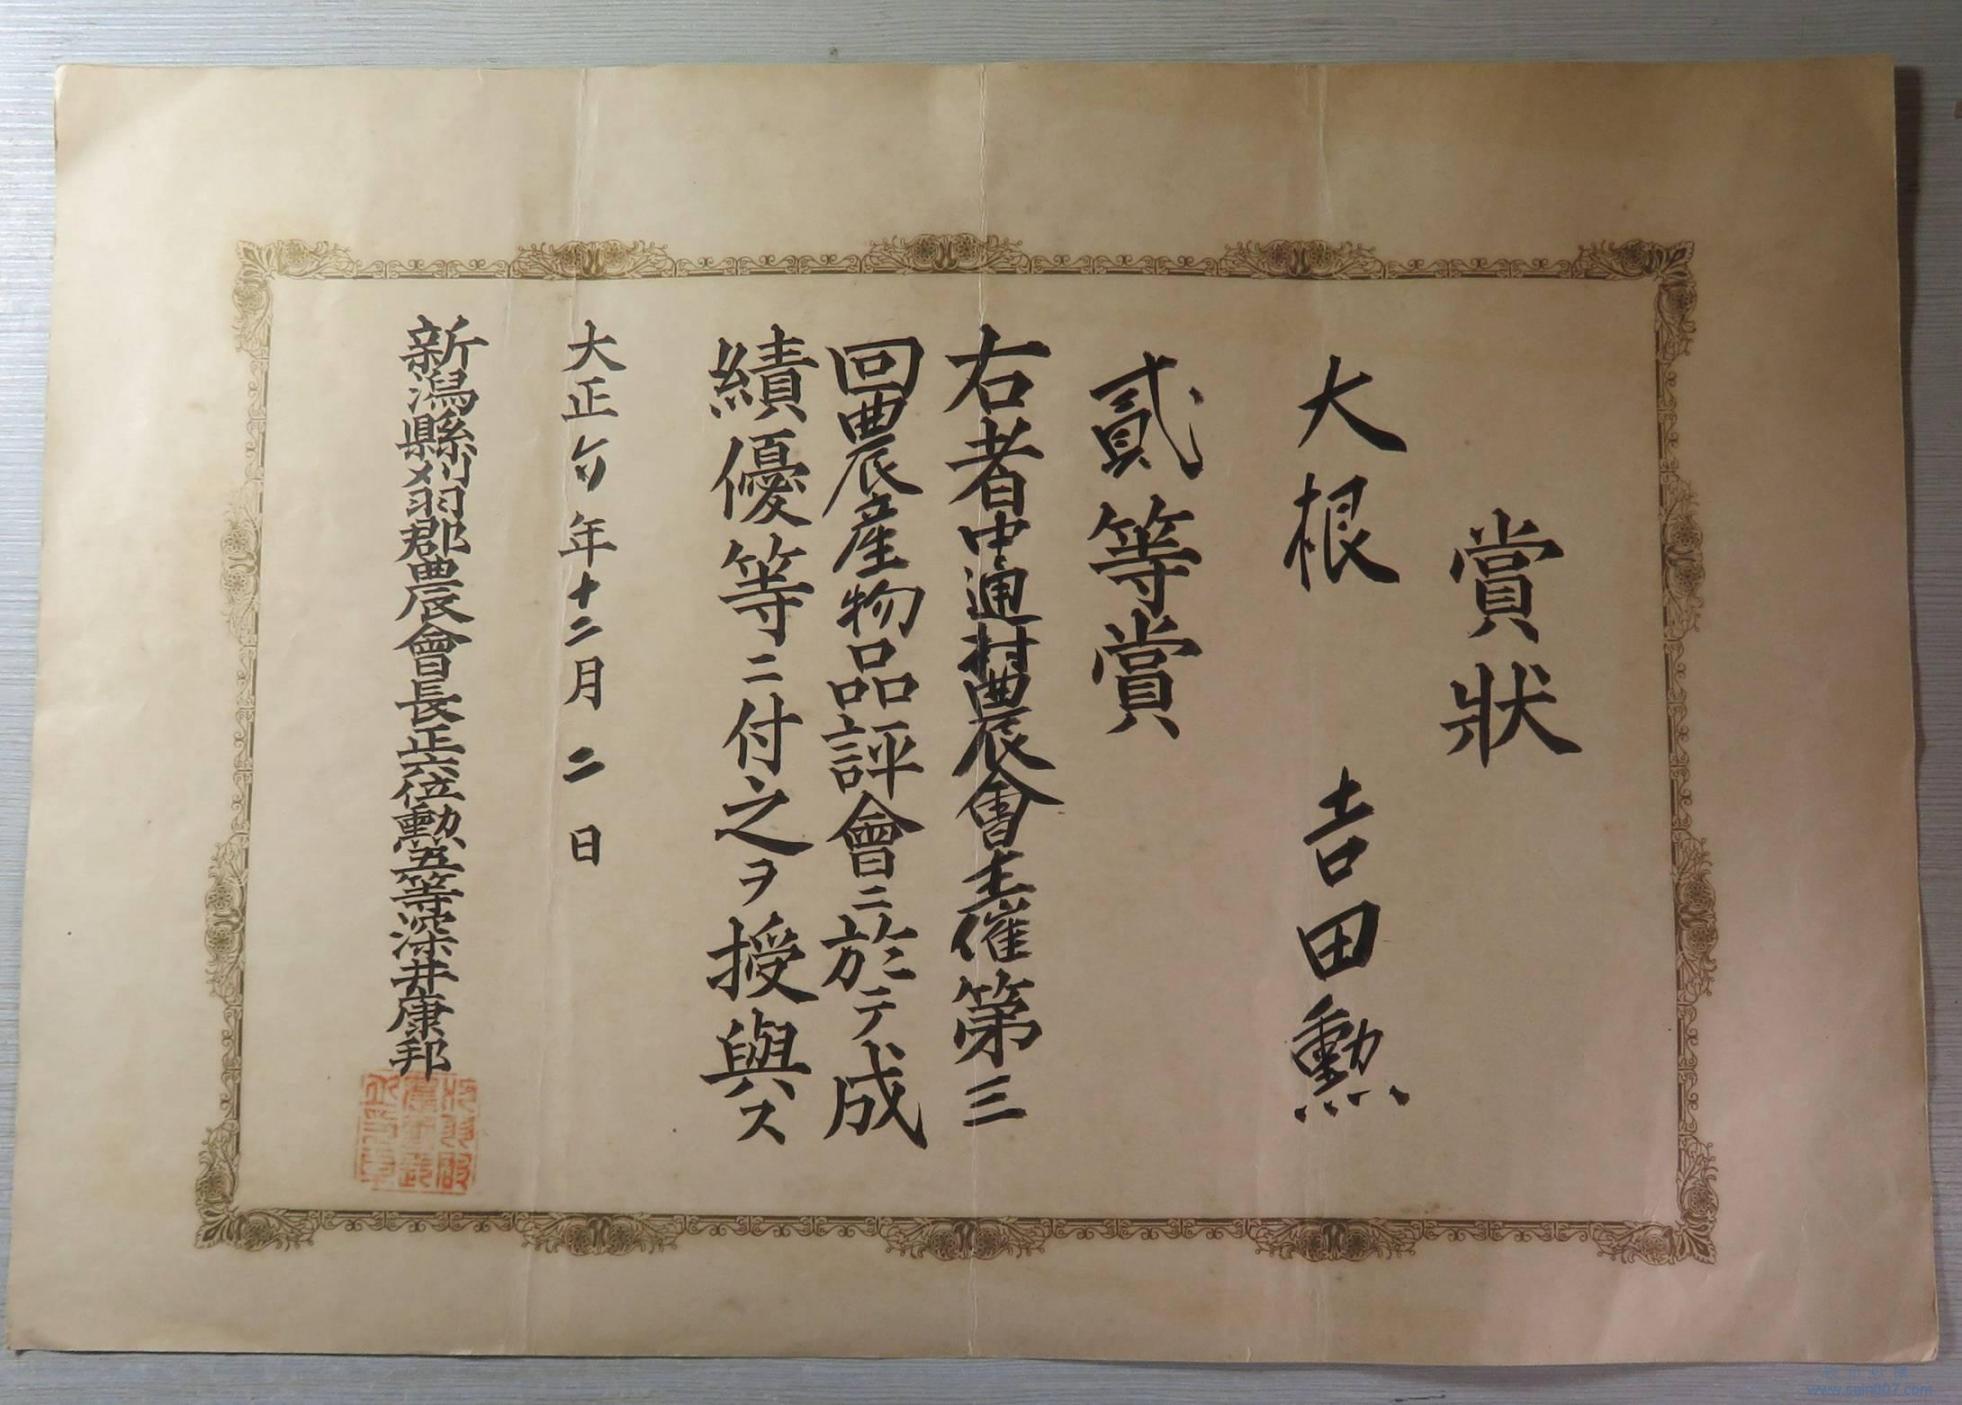 賞狀
大根 吉田勳
貳等賞
右者中通村農會主催第三
回農産物品評會ニ於テ成
績優等ニ付之ヲ授與ス
大正 年十二月二日
新潟縣刈羽郡農會長正六位勳五等深井康邦
www.sain007.com